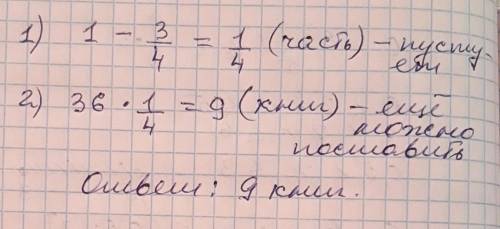 1) 1 - 3/4 = 1/4 (часть) - пусту-
ет
2) 36 · 1/4 = 9 (книг) - ещё
можно
поставить
Ответ: 9 книг.